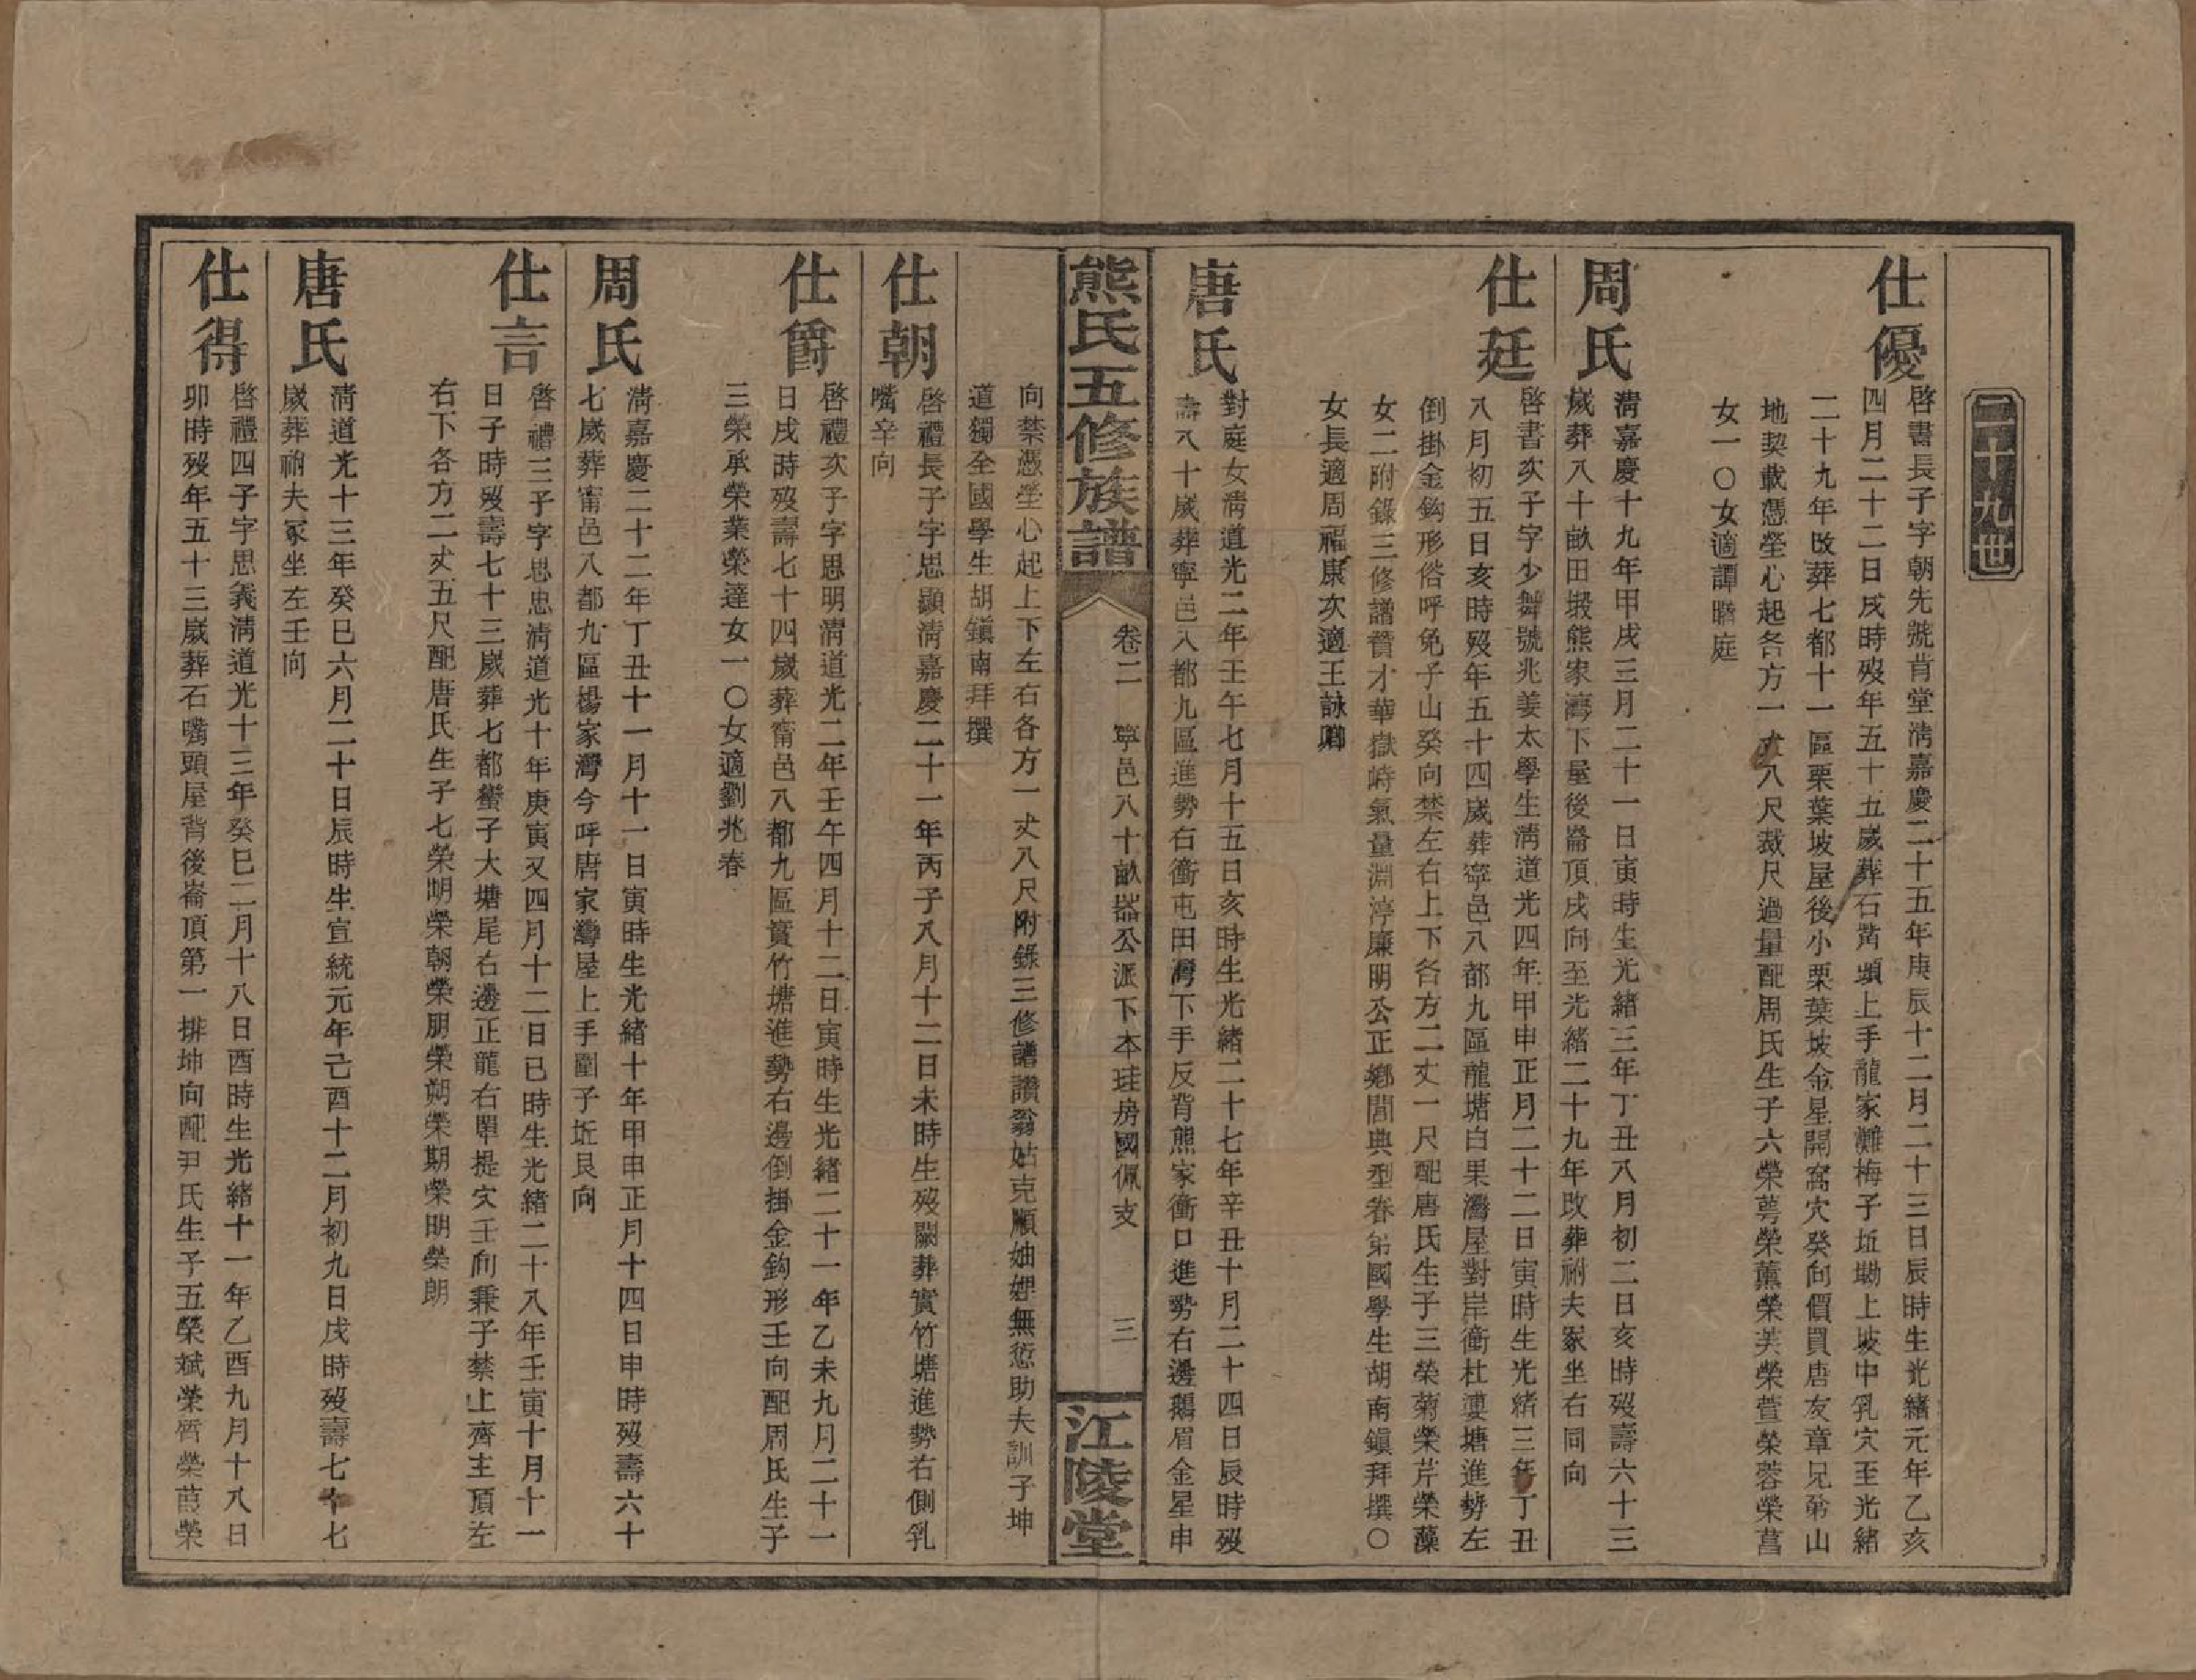 二十九世
仕優
啓書長子字朝先號肯堂淸嘉慶二十五年庚辰十二月二十三日辰時生光緖元年乙亥
四月二十二日戌時歿年五十五歲葬石觜頭上手龍家灘梅子坵塝上坡中乳穴至光緖
二十九年改葬七都十一區栗葉坡屋後小栗葉坡金星開窩穴癸向價買唐友章兄弟山
地契載憑塋心起各方一丈八尺裁尺過量配周氏生子六榮萼榮薰榮芙榮萱榮蓉榮菖
女一〇女適譚瞻庭
周氏
淸嘉慶十九年甲戌三月二十一日寅時生光緖三年丁丑八月初二日亥時歿壽六十三
歲葬八十畝田塅熊家灣下屋後崙頂戌向至光緖二十九年改葬祔夫冢坐右同向
仕廷
啓書次子字少舞號兆姜太學生淸道光四年甲申正月二十二日寅時生光緖三年丁丑
八月初五日亥時歿年五十四歲葬寧邑八都九區龍塘白果灣屋對岸衝杜婆塘進勢左
倒掛金鈎形俗呼免子山癸向禁左右上下各方二丈一尺配唐氏生子三榮菊榮芹榮藻
女二附錄三修譜贊才華嶽峙氣量淵渟廉明公正鄕閭典型眷弟國學生胡南鎭拜撰〇
女長適周福康次適王詠卿
唐氏
對庭女淸道光二年壬午七月十五日亥時生光緖二十七年辛丑十月二十四日辰時歿
壽八十歲葬寧邑八都九區進勢右衝屯田灣下手反背熊家衝口進勢右邊鵝眉金星申
熊氏五修族譜
卷二 寧邑八十畝器公派下本珪房國佩支 三
江陵堂
向禁憑塋心起上下左右各方一丈八尺附錄三修譜讚翁姑克順妯娌無愆助夫訓子坤
道獨全國學生胡鎭南拜撰
仕朝
啓禮長子字思顯淸嘉慶二十一年丙子八月十二日未時生歿闕葬實竹塘進勢右側乳
嘴辛向
仕爵
啓禮次子字思明淸道光二年壬午四月十二日寅時生光緖二十一年乙未九月二十一
日戌時歿壽七十四歲葬甯邑八都九區實竹塘進勢右邊倒掛金鈎形壬向配周氏生子
三榮承榮業榮達女一〇女適劉兆春
周氏
淸嘉慶二十二年丁丑十一月十一日寅時生光緖十年甲申正月十四日申時歿壽六十
七歲葬甯邑八都九區楊家灣今呼唐家灣屋上手圍子坵艮向
仕言
啓禮三子字思忠淸道光十年庚寅又四月十二日巳時生光緖二十八年壬寅十月十一
日子時歿壽七十三歲葬七都蠻子大塘尾右邊正龍右單提穴壬向兼子禁止齊主頂左
右下各方二丈五尺配唐氏生子七榮明榮朝榮朋榮朔榮期榮明榮朗
唐氏
淸道光十三年癸巳六月二十日辰時生宣統元年己酉十二月初九日戌時歿壽七十七
歲葬祔夫冢坐左壬向
仕得
啓禮四子字思義淸道光十三年癸巳二月十八日酉時生光緖十一年乙酉九月十八日
卯時歿年五十三歲葬石嘴頭屋背後崙頂第一排坤向配尹氏生子五榮斌榮質榮榮